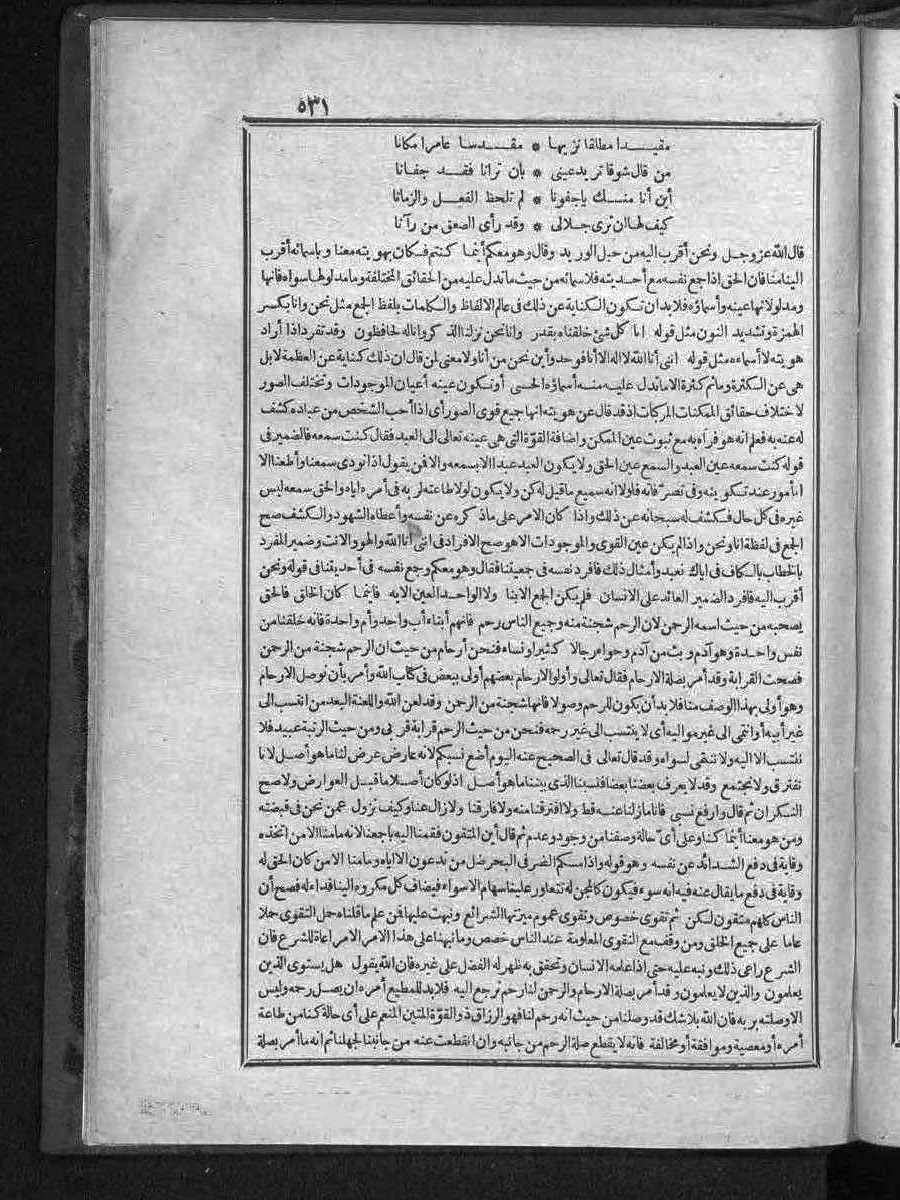 ٥٣١
مقيدا مطلقا نزيها * مقدسا عامرا مكانا
من قال شوقا تريد عيني * بان ترانا فقد جفانا
أين أنا منك ياجفونا * لم تلحظ الفعل والزمانا
كيف لها ان ترى جلالى * وقد رأى الصعق من رآنا
قال الله عز وجل ونحن أقرب اليه من حبل الوريد وقال وهو معكم أينما كنتم فكان بهويته معنا وباسمائه أقرب
الينا منا فان الحق اذا جمع نفسه مع أحديته فلاسمائه من حيث ما تدل عليه من الحقائق المختلفة وما مدلولها سواه فانها
ومدلولاتها عينه وأسماؤه فلا بد ان تكون الكناية عن ذلك فى عالم الالفاظ والكلمات بلفظ الجمع مثل نحن وانا بكسر
الهمزة وتشديد النون مثل قوله انا كل شئ خلقناه بقدر وانا نحن نزلنا الذكر وانا له لحافظون وقد تفرد اذا أراد
هويته لا أسماءه مثل قوله اننى أنا الله لا اله الا أنا فوحد وأين نحن من أنا ولا معنى لمن قال ان ذلك كناية عن العظمة لا بل
هى عن الكثرة وما ثم كثرة الا ما تدل عليه منه أسماؤه الحسنى أو تكون عينه أعيان الموجودات وتختلف الصور
لاختلاف حقائق الممكنات المركبات اذ قد قال عن هويته انها جميع قوى الصور أى اذا أحب الشخص من عباده كشف
له عنه به فعلم انه هو فرآه به مع ثبوت عين الممكن واضافة القوة التى هى عينه تعالى الى العبد فقال كنت سمعه فالضمير فى
قوله كنت سمعه عين العبد والسمع عين الحق ولا يكون العبد عبدا الا بسمعه والا فن يقول اذا نودى سمعنا وأطعنا الا
المأمور عند تكوينه وفى تصرّفاته فلولا انه سميع ما قيل له كن ولا يكون لولا طاعته لربه فى أمره اياه والحق سمعه ليس
غيره فى كل حال فكشف له سبحانه عن ذلك واذا كان الامر على ما ذكره عن نفسه وأعطاه الشهود والكشف صح
الجمع فى لفظة انا ونحن واذا لم يكن عين القوى والموجودات الا هو صح الافراد فى اننى أنا الله والهو والانت وضمير المفرد
بالخطاب بالكاف فى اياك نعبد وأمثال ذلك فافرد نفسه فى جمعيتنا فقال وهو معكم وجمع نفسه فى أحديتنا فى قوله ونحن
أقرب اليه فافرد الضمير العائد على الانسان فلم يكن الجمع الا بنا ولا الواحد العين الا به فانما كان الخلق فالحق
يصحبه من حيث اسمه الرحمن لان الرحم شجنة منه وجميع الناس رحم فانهم أبناء أب واحد وأم واحدة فانه خلقنا من
نفس واحدة وهو آدم وبث من آدم وحواء رجالا كثيرا ونساء فنحن أرحام من حيث ان الرحم شجنة من الرحمن
فصحت القرابة وقد أمر بصلة الارحام فقال تعالى وأولوا الارحام بعضهم أولى ببعض فى كتاب الله وأمر بأن نوصل الارحام
وهو أولى بهذا الوصف منا فلا بد أن يكون للرحم وصولا فانها شجنة من الرحمن وقد لعن الله واللعنة البعد من انتسب الى
غير أبيه أو انتمى الى غير مواليه أى لا ينتسب الى غير رحمه فنحن من حيث الرحم قرابة قربى ومن حيث الرتبة عبيد فلا
ننتسب الا اليه ولا ننتمى لسواه وقد قال تعالى فى الصحيح عنه اليوم أضع نسبكم لانه عارض عرض لنا ما هو أصل لانا
نفترق ولا نجتمع وقد لا يعرف بعضنا بعضا فنسبنا الذى بيننا ما هو أصل اذ لو كان أصلا ما قبل العوارض ولا صح
النكران ثم قال وارفع نسبى فانا ما زلنا عنه قط ولا افترقنا منه ولا فارقنا ولا زال عنا وكيف نزول عمن نحن فى قبضته
ومن هو معنا أينما كنا وعلى أىّ حالة وصفنا من وجود وعدم ثم قال أين المتقون فقمنا اليه باجمعنا لانه ما منا الا من اتخذه
وقاية فى دفع الشدائد عن نفسه وهو قوله واذا مسكم الضر فى البحر ضل من تدعون الا اياه وما منا الا من كان الحق له
وقاية فى دفع ما يقال عنه فيه انه سوء فيكون كالمجن له تتعاور علينا سهام الاسواء فيضاف كل مكروه الينا فداء له فصح أن
الناس كلهم متقون لكن ثم تقوى خصوص وتقوى عموم ميزتها الشرائع ونبهت عليها فمن علم ما قلناه حمل التقوى حملا
عاما على جميع الخلق ومن وقف مع التقوى المعلومة عند الناس خصص وما نبهنا على هذا الامر الا مراعاة للشرع فان
الشرع راعى ذلك ونبه عليه حتى اذا علمه الانسان وتحقق به ظهر له الفضل على غيره فان الله يقول هل يستوى الذين
يعلمون والذين لا يعلمون وقد أمر بصلة الارحام والرحمن لنا رحم نرجع اليه فلا بد للمطيع أمره ان يصل رحمه وليس
الا وصلته بربه فان الله بلا شك قد وصلنا من حيث انه رحم لنا فهو الرزاق ذو القوّة المتين المنعم على أى حالة كنا من طاعة
أمره أو معصية وموافقة أو مخالفة فانه لا يقطع صلة الرحم من جانبه وان انقطعت عنه من جانبنا لجهلنا ثم انه ما أمر بصلة